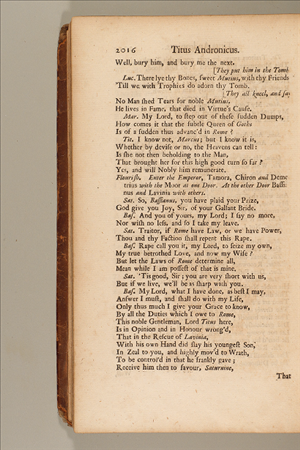 2016 Titus Andronicus.
Well, bury him, and bury me the next.
[They put him in the Tomb
Luc. There lye thy Bones, sweet Mutius, with thy Friends
'Till we with Trophies do adorn thy Tomb.
[They all kneel, and say
No Man shed Tears for noble Mutius.
He lives in Fame, that died in Virtue's Cause.
Mar. My Lord, to step out of these sudden Dumps,
How comes it that the subtle Queen of Goths
Is of a sudden thus advanc'd in Rome?
Tit. I know not, Marcus; but I know it is,
Whether by devise or no, the Heavens can tell:
Is she not then beholding to the Man,
That brought her for this high good turn so far?
Yes, and will Nobly him remunerate.
Flourish. Enter the Emperor, Tamora, Chiron and Deme
trius with the Moor at one Door. At the other Door Bassi
nus and Lavinia with others.
Sat. So, Bassianus, you have plaid your Prize,
God give you Joy, Sir, of your Gallant Bride.
Bas. And you of yours, my Lord; I say no more,
Nor wish no less, and so I take my leave.
Sat. Traitor, if Rome have Law, or we have Power,
Thou and thy Faction shall repent this Rape.
Bas. Rape call you it, my Lord, to seize my own,
My true betrothed Love, and now my Wife?
But let the Laws of Rome determine all,
Mean while I am possest of that is mine.
Sat. 'Tis good, Sir; you are very short with us,
But if we live, we'll be as sharp with you.
Bas. My Lord, what I have done, as best I may,
Answer I must, and shall do with my Life,
Only thus much I give your Grace to know,
By all the Duties which I owe to Rome,
This noble Gentleman, Lord Titus here,
Is in Opinion and in Honour wrong'd,
That in the Rescue of Lavinia,
With his own Hand did slay his youngest Son,
In Zeal to you, and highly mov'd to Wrath,
To be control'd in that he frankly gave;
Receive him then to favour, Saturnine,
That